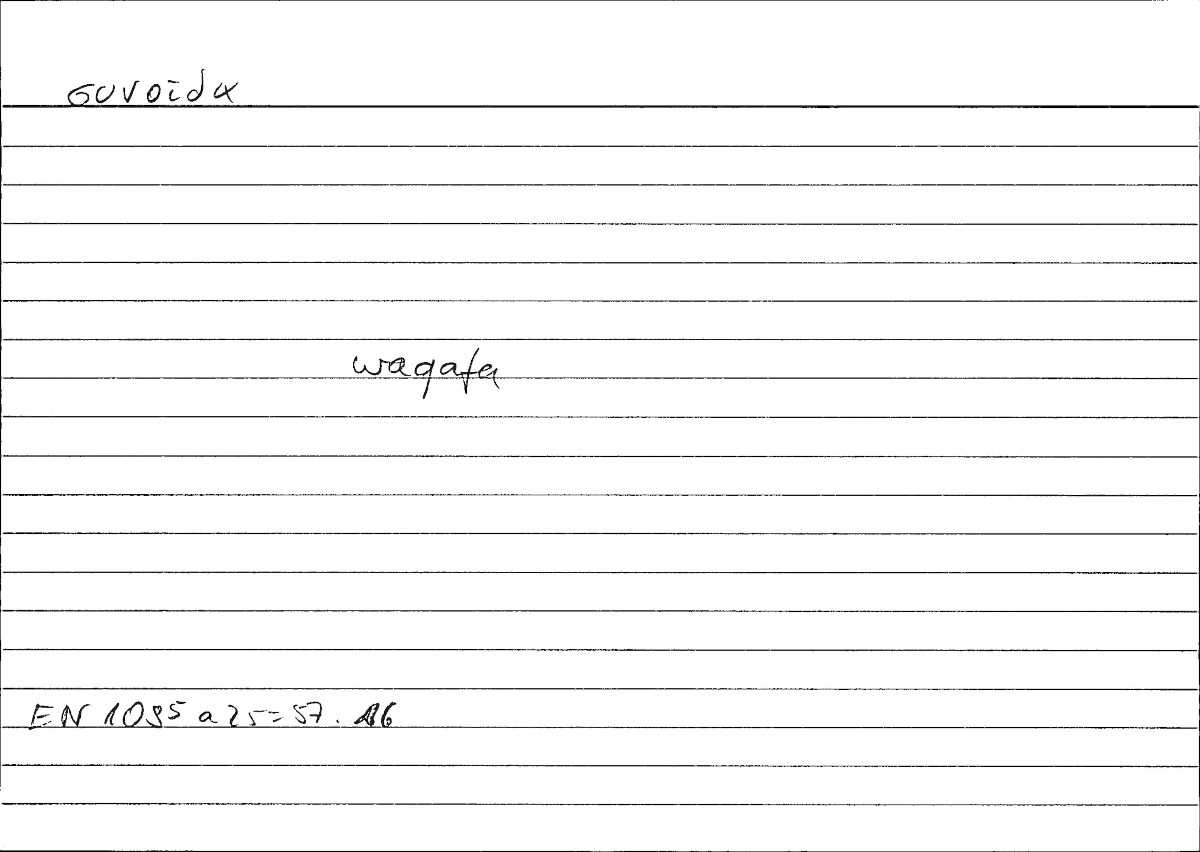 συνοῖδα
waqafa
EN 1095 a 25 = 57. 16